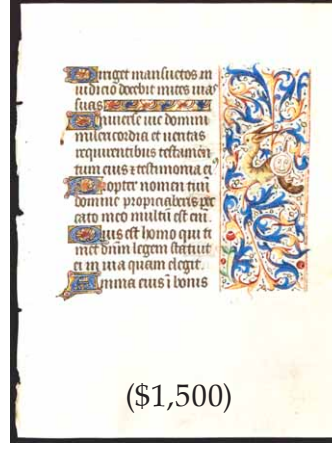 Diriget mansuetos in
iudicio docebit mites uias
suas
Uniuerse uie domini
misericordia et ueritas
requirentibus testamen
tum eius et testimonia ei9
Propter nomen tuū
domine propiciaberis pec
cato meo multū est eni.
Quis est homo qui ti
met dn̄m legem statuit
ei in uia quam elegit.
Anima eius ī bonis
($1,500)